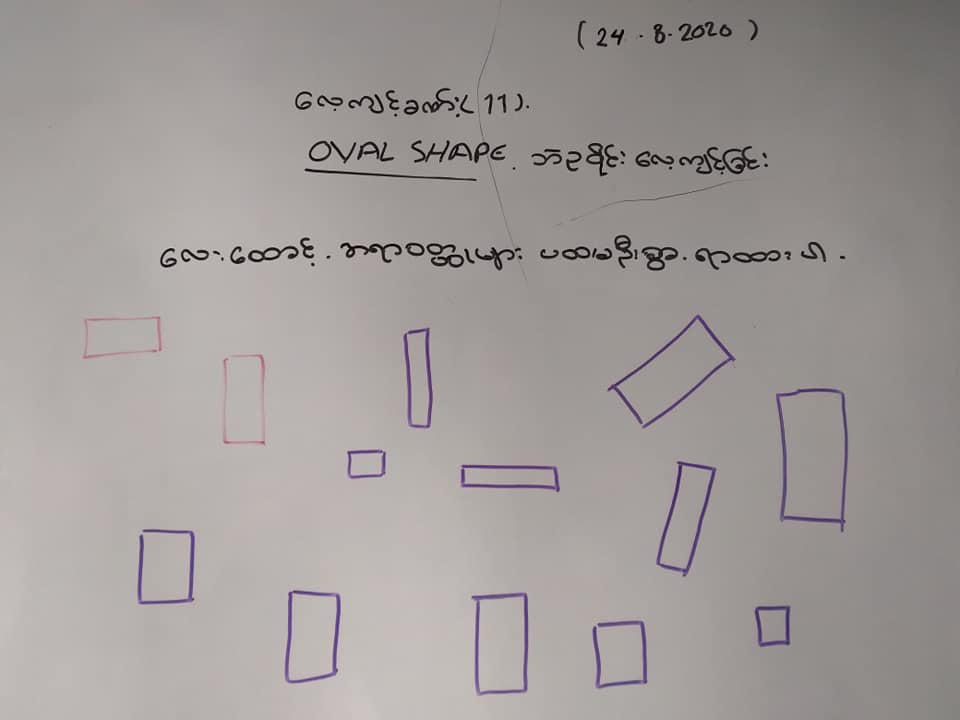 (24.8.2020)
လေ့ကျင့်ခဏ်း(11).
OVAL SHAPE. ဘဲဥရိုင်း လေ့ကျင့်ခြင်း
လေးထောင့်. အရာဝတ္ထုများ ပထမဦးစွာ. ရာထားပါ.